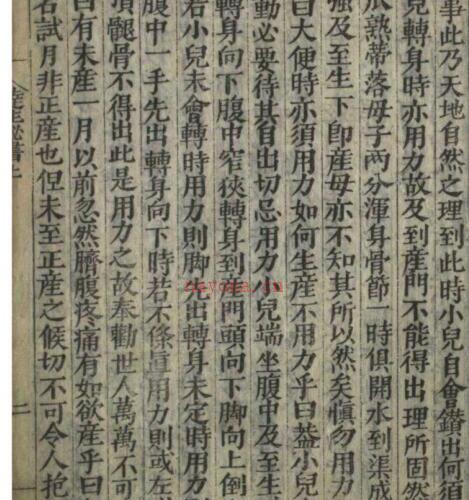 事此乃天地自然之理到此時小兒自會鑽出何須
兒轉身時亦用力故及到産門不能得出理所固然
瓜熟蒂落母子兩分渾身骨節一時俱開水到渠成
強及至生下卽産母亦不知其所以然矣愼勿用力
曰大便時亦須用力如何生産不用力乎曰葢小兒
動必要待其自出切忌用力小兒端坐腹中及至生
轉身向下腹中窄狹轉身到産門頭向下脚向上倒
若小兒未會轉時用力則脚先出轉身未定時用力則
腹中一手先出轉身向下時若不條直用力則或左
頂腿骨不得出此是用力之故奉勸世人萬萬不可
曰有未産一月以前忽然臍腹疼痛有如欲産乎曰
名試月非正産也但未至正産之候切不可令人抱
生祕書上 二